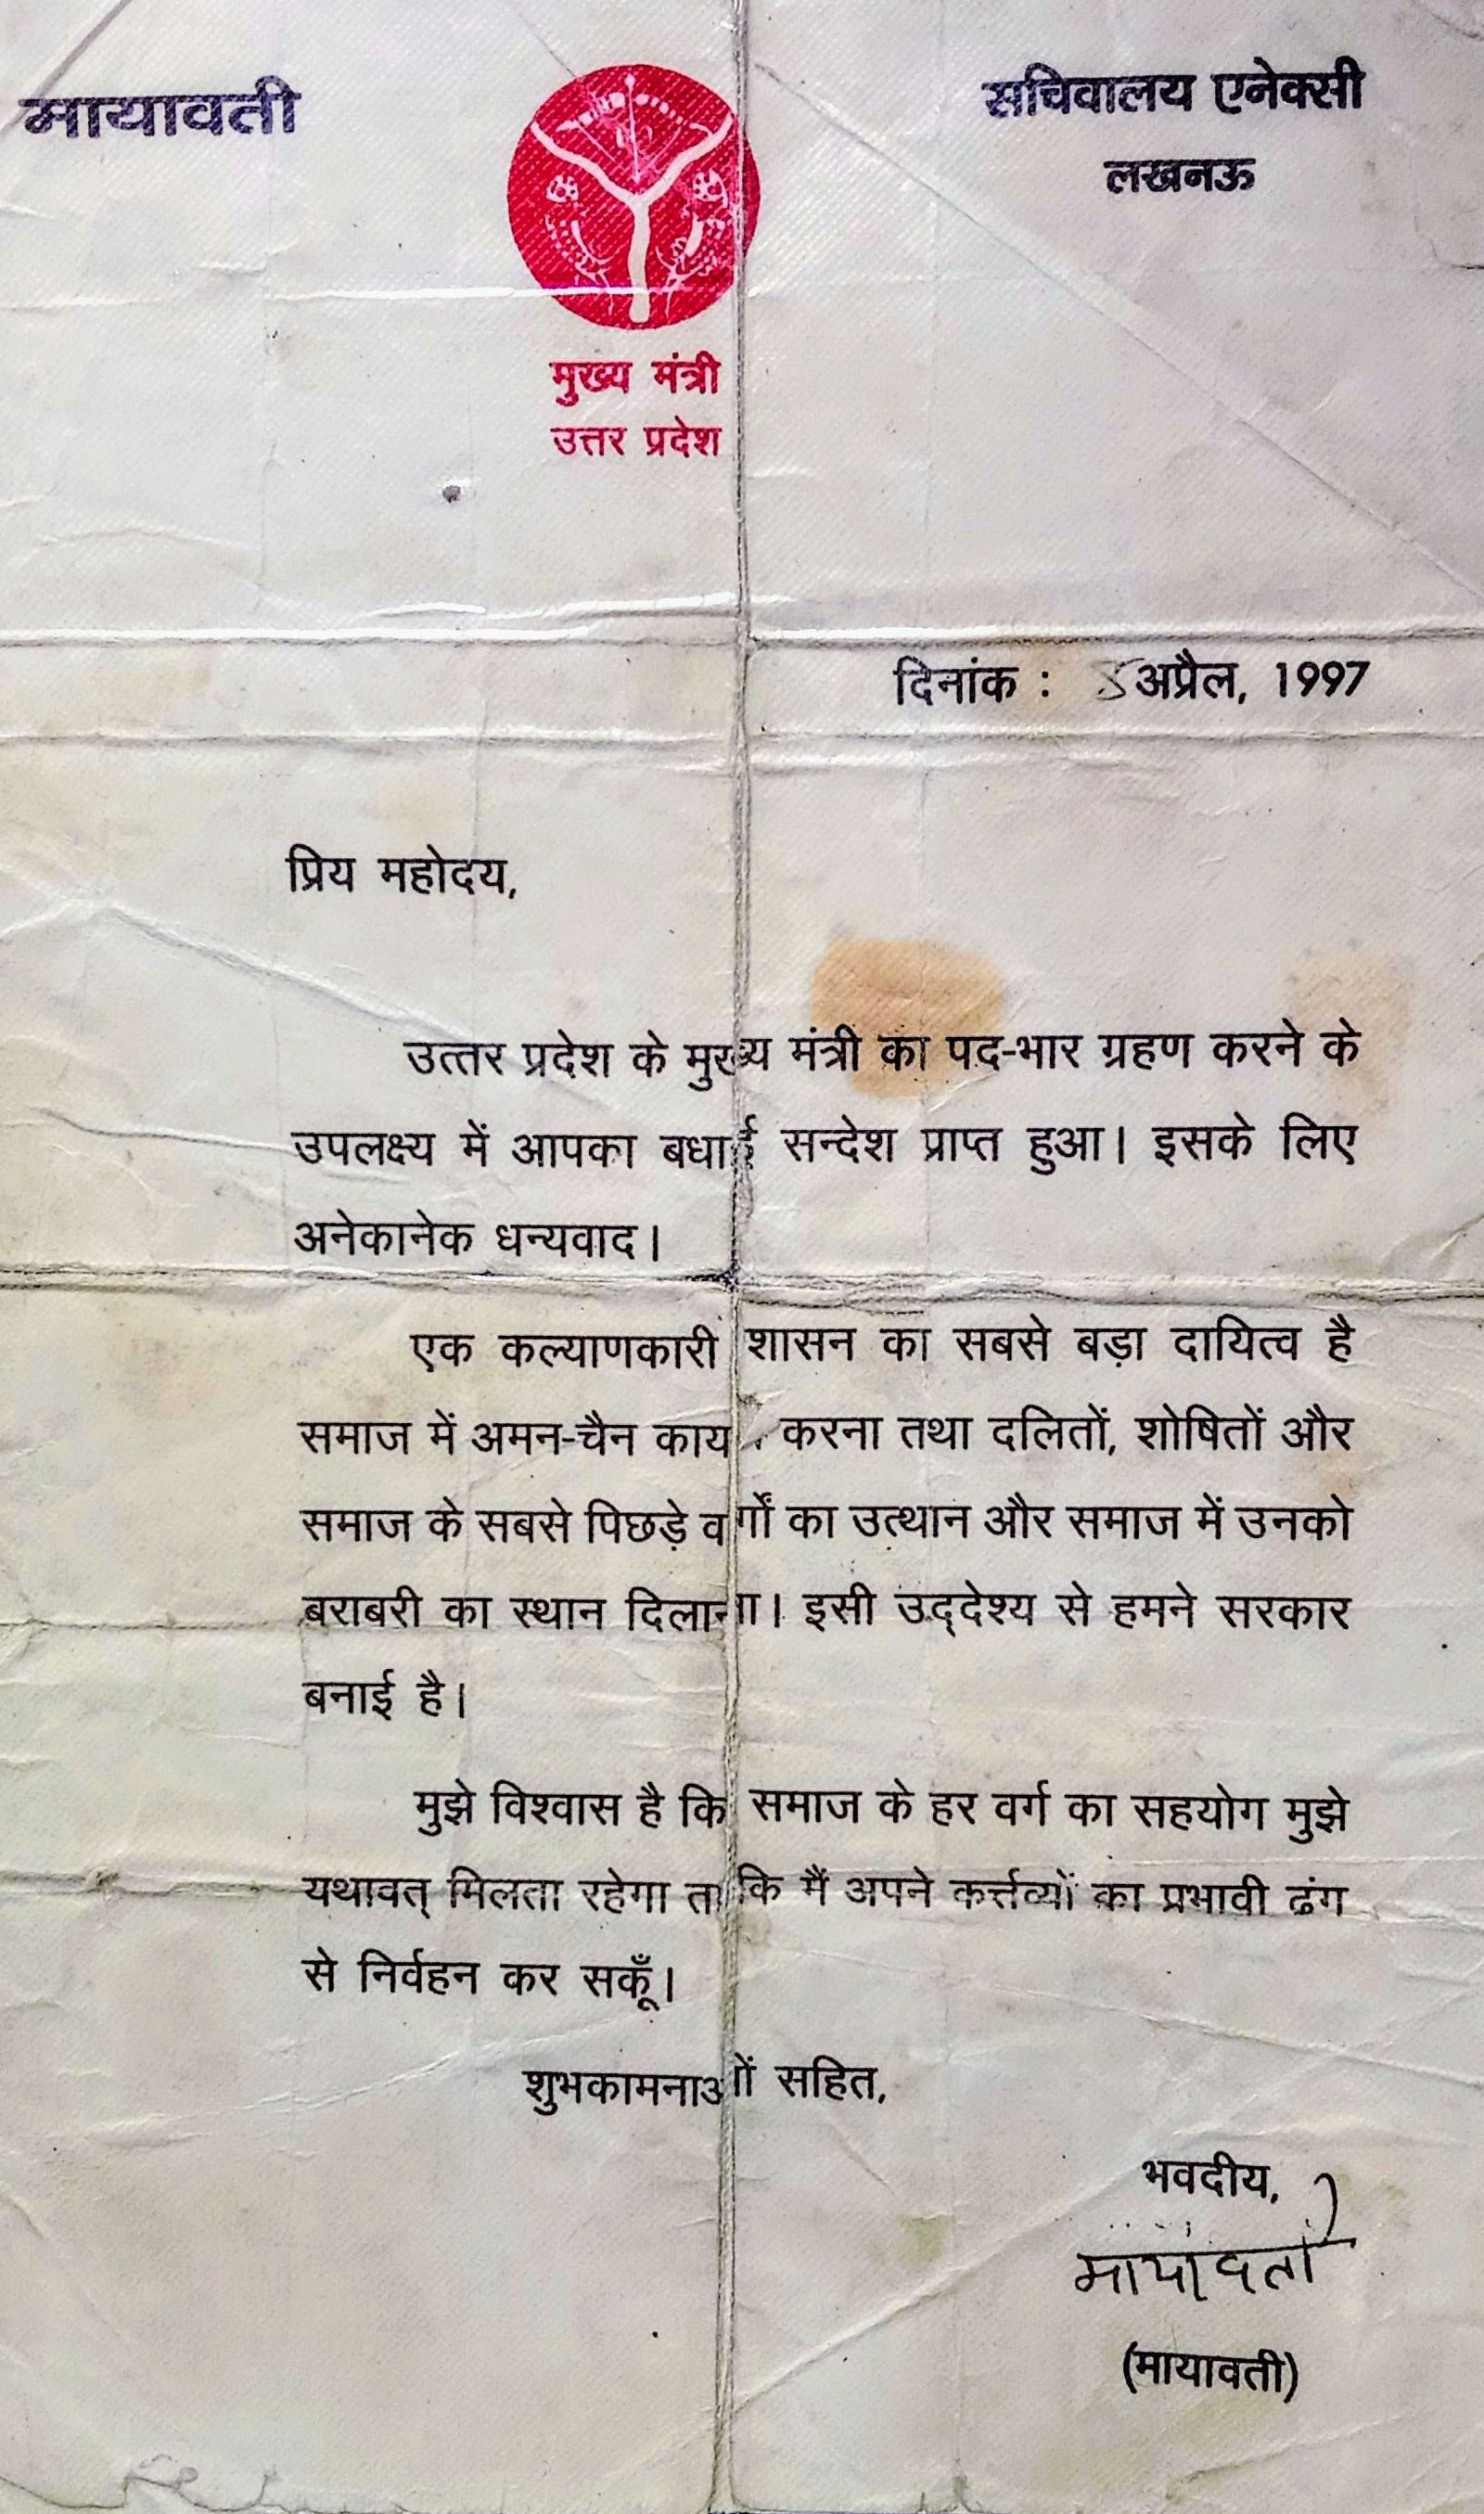 मायावती
सचिवालय एनेक्सी
लखनऊ
मुख्य मंत्री
उत्तर प्रदेश
दिनांक : अप्रैल, 1997
प्रिय महोदय,
उत्तर प्रदेश के मुख्य मंत्री का पद-भार ग्रहण करने के
उपलक्ष्य में आपका बधाई सन्देश प्राप्त हुआ। इसके लिए
अनेकानेक धन्यवाद।
एक कल्याणकारी शासन का सबसे बड़ा दायित्व है
समाज में अमन-चैन काय करना तथा दलितों, शोषितों और
समाज के सबसे पिछड़े वर्गों का उत्थान और समाज में उनको
बराबरी का स्थान दिलाना। इसी उद्‌देश्य से हमने सरकार
बनाई है।
मुझे विश्वास है कि समाज के हर वर्ग का सहयोग मुझे
यथावत् मिलता रहेगा ताकि मैं अपने कर्त्तव्यों का प्रभावी ढंग
से निर्वहन कर सकूँ।
शुभकामनाओं सहित,
भवदीय,
मायावती
(मायावती)